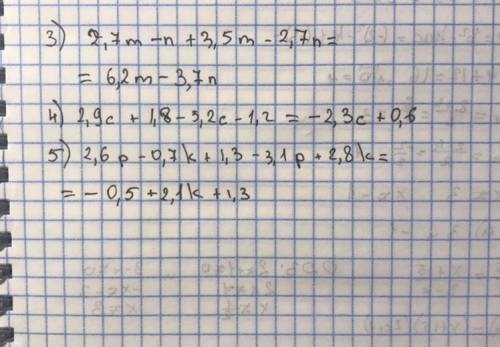 3) 2,7m - n + 3,5m - 2,7n =
= 6,2m - 3,7n
4) 2,9c + 1,8 - 5,2c - 1,2 = -2,3c + 0,6
5) 2,6p - 0,7k + 1,3 - 3,1p + 2,8k =
= - 0,5 + 2,1k + 1,3